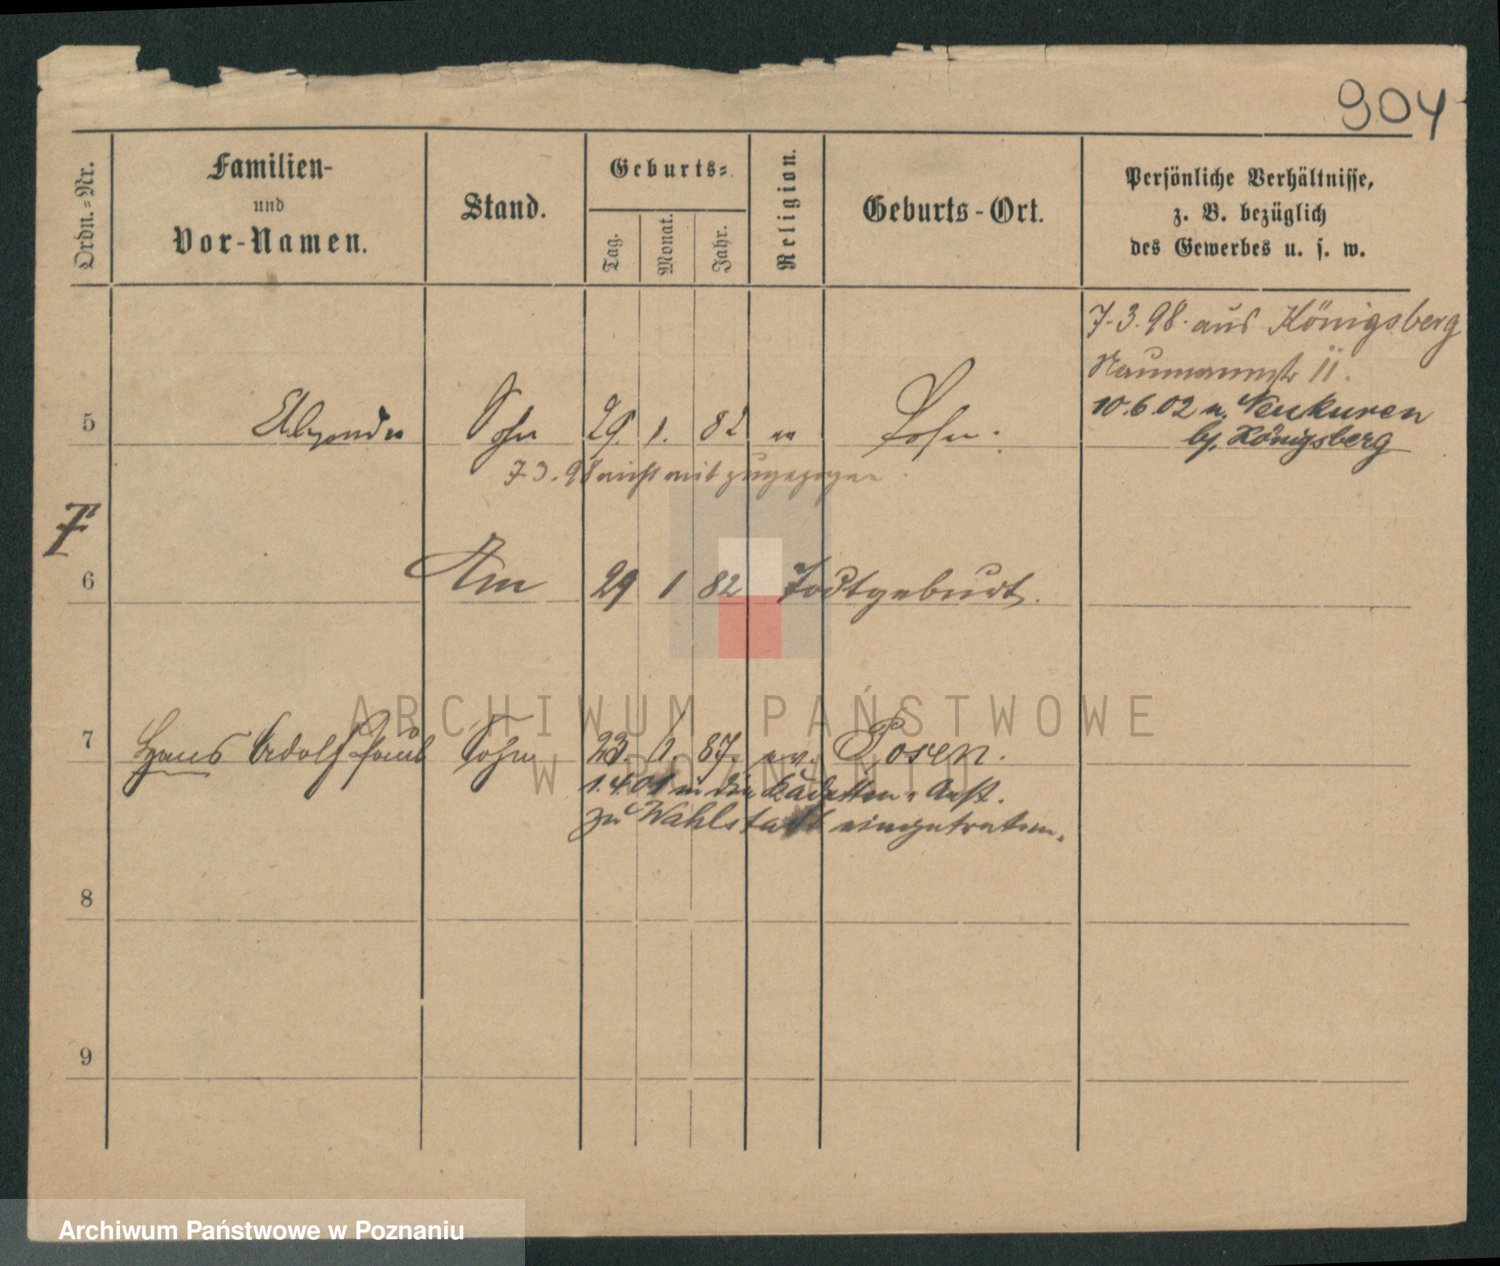 904
Ordn.-Nr.
Familien-
und
Vor-Namen.
Stand.
Geburts-
Tag.
Monat.
Jahr.
Religion.
Geburts-Ort.
Persönliche Verhältnisse,
z. B. bezüglich
des Gewerbes u. s. w.
7.3.98. aus Königsberg
Naumannstr 11.
10.6.02 n. Neukuren
b/ Königsberg
5 Alexander Sohn 29. 1. 82 ev
7.3.98 nicht mit zugezogen
6 29 1 82 Todtgeburt.
7 Hans Adolf Paul Sohn 23. 1. 87. ev. Posen.
1.4.01 in die Kadetten-Anst.
zu Wahlstatt eingetreten.
8
9
ARCHIWUM PAŃSTWOWE
W POZNANIU
Archiwum Państwowe w Poznaniu